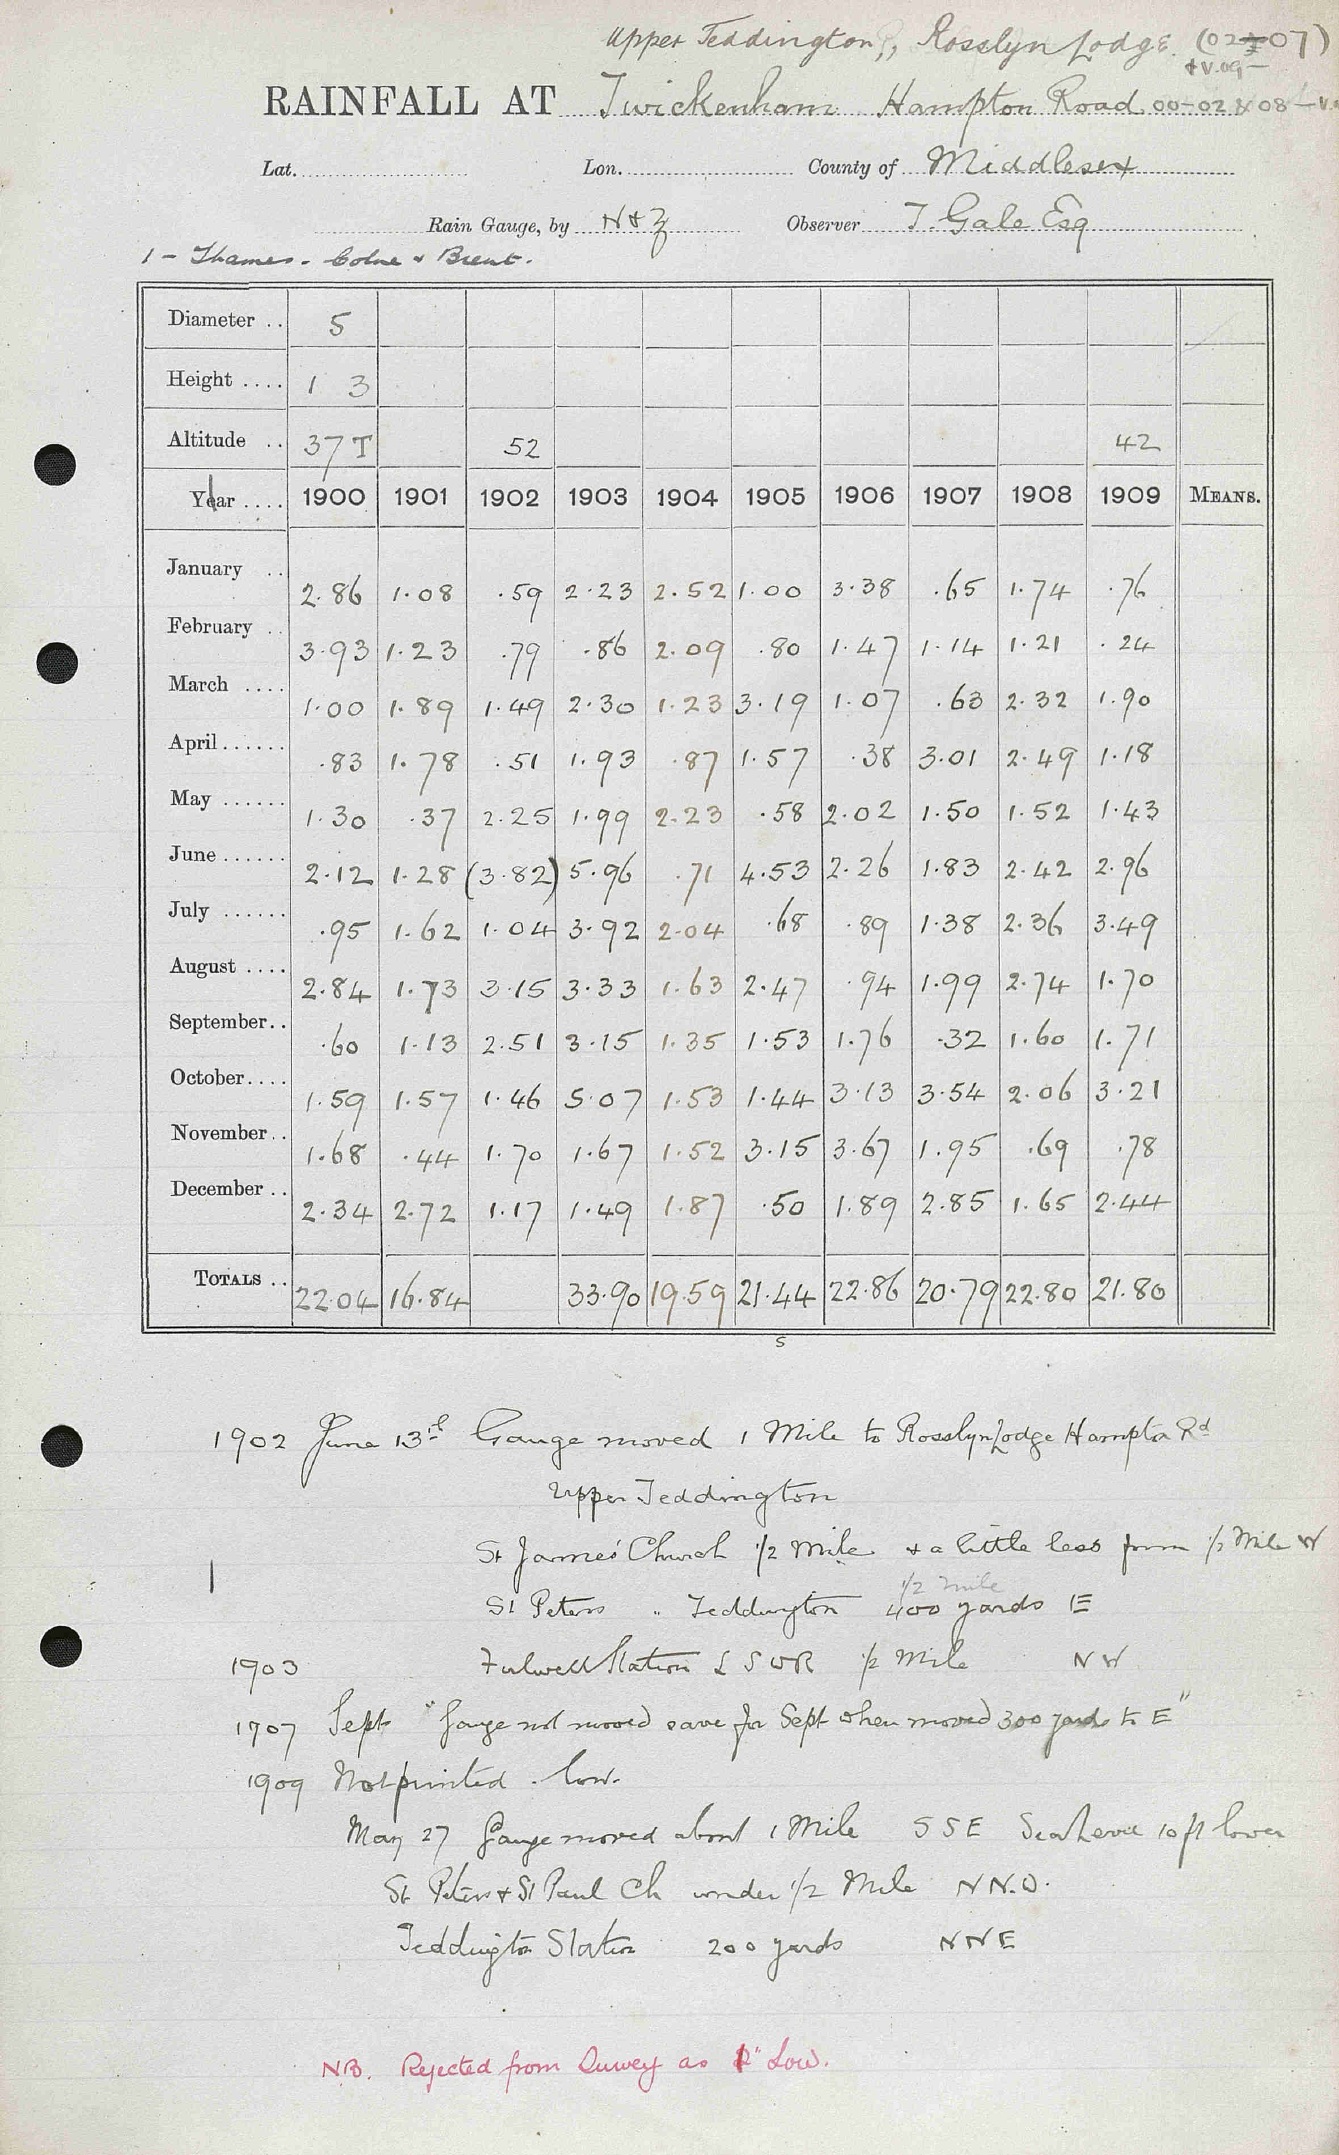 Upper Teddington, Rosslyn Lodge (02-07)
& V.09-
RAINFALL AT Twickenham Hampton Road 00-02 & 08-
Lat. Lon. County of Middlesex
Rain Gauge, by N&Z Observer T. Gale Esq
1 - Thames. Colne & Brent.
Diameter .. 5
Height .... 1 3
Altitude .. 37 T 52 42
Year .... 1900 1901 1902 1903 1904 1905 1906 1907 1908 1909 MEANS.
January .. 2.86 1.08 .59 2.23 2.52 1.00 3.38 .65 1.74 .76
February .. 3.93 1.23 .79 .86 2.09 .80 1.47 1.14 1.21 .24
March .... 1.00 1.89 1.49 2.30 1.23 3.19 1.07 .63 2.32 1.90
April ...... .83 1.78 .51 1.93 .87 1.57 .38 3.01 2.49 1.18
May ...... 1.30 .37 2.25 1.99 2.23 .58 2.02 1.50 1.52 1.43
June ...... 2.12 1.28 (3.82) 5.96 .71 4.53 2.26 1.83 2.42 2.96
July ...... .95 1.62 1.04 3.92 2.04 .68 .89 1.38 2.36 3.49
August .... 2.84 1.73 3.15 3.33 1.63 2.47 .94 1.99 2.74 1.70
September.. .60 1.13 2.51 3.15 1.35 1.53 1.76 .32 1.60 1.71
October.... 1.59 1.57 1.46 5.07 1.53 1.44 3.13 3.54 2.06 3.21
November.. 1.68 .44 1.70 1.67 1.52 3.15 3.67 1.95 .69 .78
December .. 2.34 2.72 1.17 1.49 1.87 .50 1.89 2.85 1.65 2.44
TOTALS .. 22.04 16.84 33.90 19.59 21.44 22.86 20.79 22.80 21.80
s
1902 June 13th Gauge moved 1 Mile to Rosslyn Lodge Hampton Rd
Upper Teddington
St James' Church 1/2 Mile & a little less from 1/2 Mile W
1/2 mile
St Peters " Teddington 400 yards E
1903 Fulwell Station L S W R 1/2 Mile N W
1907 Sept "Gauge not moved save for Sept when moved 300 yards to E"
1909 Not printed. low.
May 27 Gauge moved about 1 Mile S S E Sea Level 10 ft lower
St Peters & St Paul Ch under 1/2 Mile N N.W.
Teddington Station 200 yards N N E
N.B. Rejected from Survey as " Low.